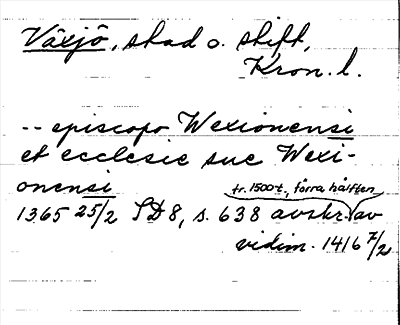 Växjö, stad o. stift,
Kron. l.
-- episcopo Wexionensi
et ecclesie sue Wexi-
onensi
fr. 1500-t., förra hälften
1365 25/2 SD 8, s. 638 avskr. av
vidim. 1416 7/2